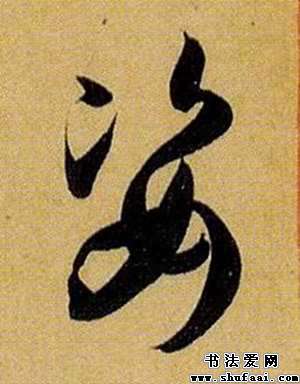 姿
书法爱网
www.shufaai.com